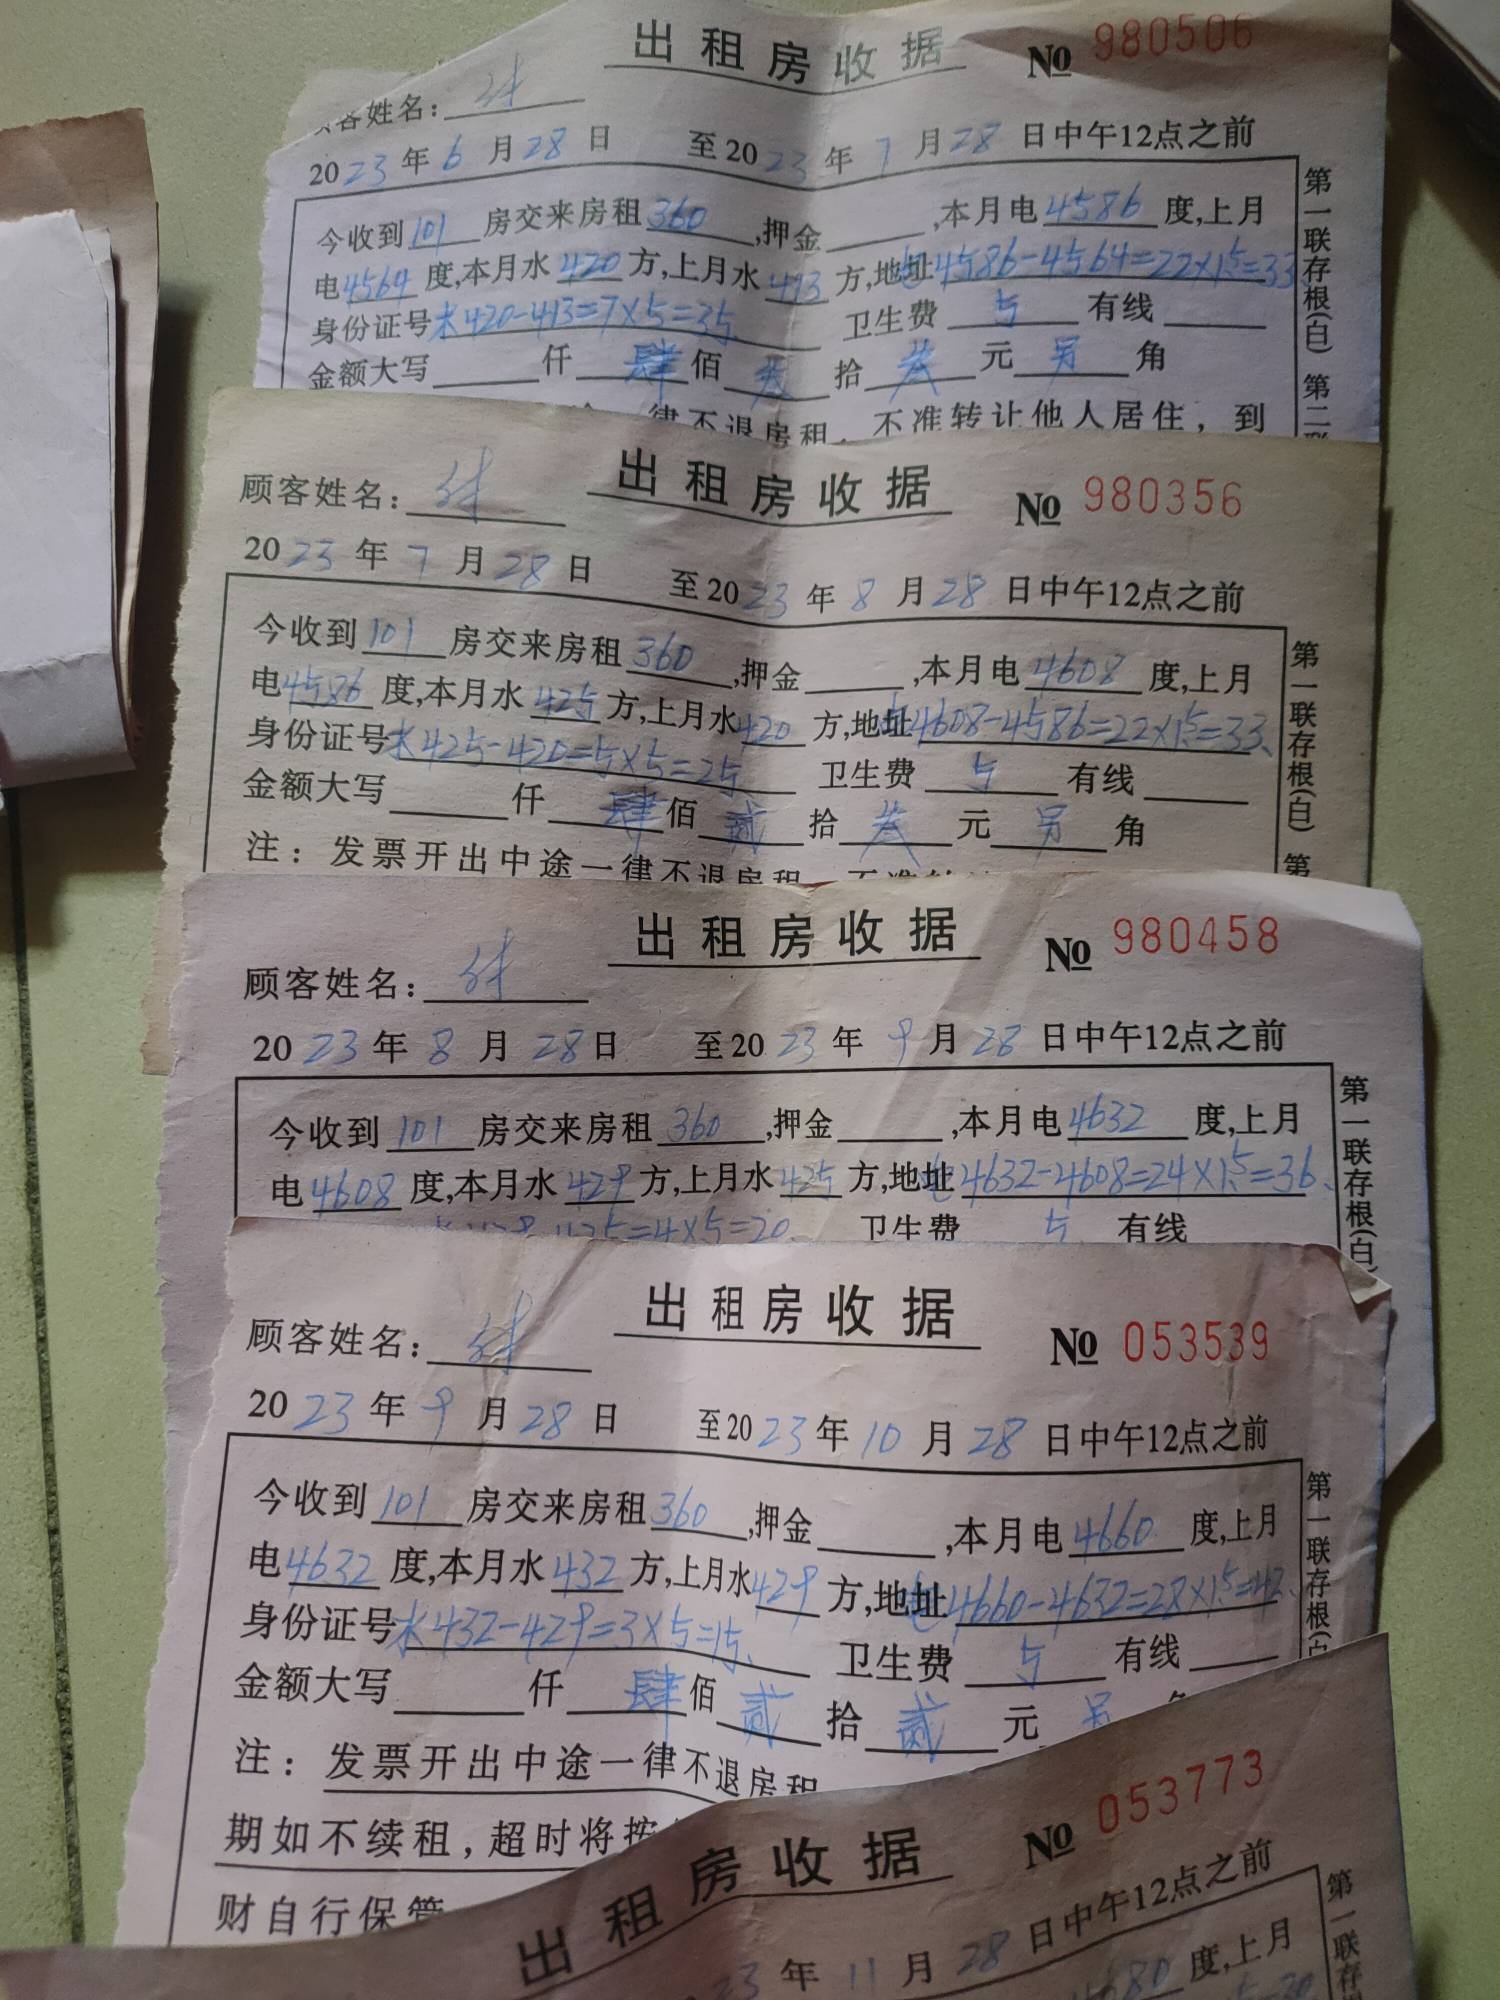 出租房收据 № 980506
客姓名：
2023年6月28日 至2023年7月28日中午12点之前
今收到101房交来房租360,押金 ,本月电4586度,上月
电4564度,本月水420方,上月水413方,地址电4586-4564=22×1.5=33
身份证号水420-413=7×5=35 卫生费5有线
金额大写 仟肆佰叁拾叁元另角
律不退房租，不准转让他人居住，到
第一联存根(白) 第二联
出租房收据 № 980356
顾客姓名：
2023年7月28日 至2023年8月28日中午12点之前
今收到101房交来房租360,押金 ,本月电4608度,上月
电4586度,本月水425方,上月水420方,地址电4608-4586=22×1.5=33.
身份证号水425-420=5×5=25 卫生费5有线
金额大写 仟肆佰贰拾叁元另角
注：发票开出中途一律不退房租
第一联存根(白) 第
出租房收据 № 980458
顾客姓名：
2023年8月28日 至2023年9月28日中午12点之前
今收到101房交来房租360,押金 ,本月电4632度,上月
电4608度,本月水429方,上月水425方,地址电4632-4608=24×1.5=36.
水429-425=4×5=20. 卫生费5有线
第一联存根(白)
出租房收据 № 053539
顾客姓名：
2023年9月28日 至2023年10月28日中午12点之前
今收到101房交来房租360,押金 ,本月电4660度,上月
电4632度,本月水432方,上月水429方,地址电4660-4632=28×1.5=42.
身份证号水432-429=3×5=15. 卫生费5有线
金额大写 仟肆佰贰拾贰元另角
注：发票开出中途一律不退房租
期如不续租，超时将按
财自行保管
第一联存根(白
出租房收据 № 053773
23年11月28日中午12点之前
4680度,上月
第一联存